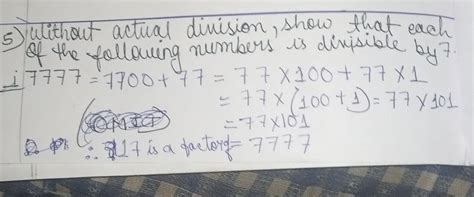 5) Without actual division, show that each
of the following numbers is divisible by 7.
i 7777 = 7700 + 77 = 77 × 100 + 77 × 1
= 77 × (100 + 1) = 77 × 101
= 77 × 101
∴ 7 is a factor of = 7777